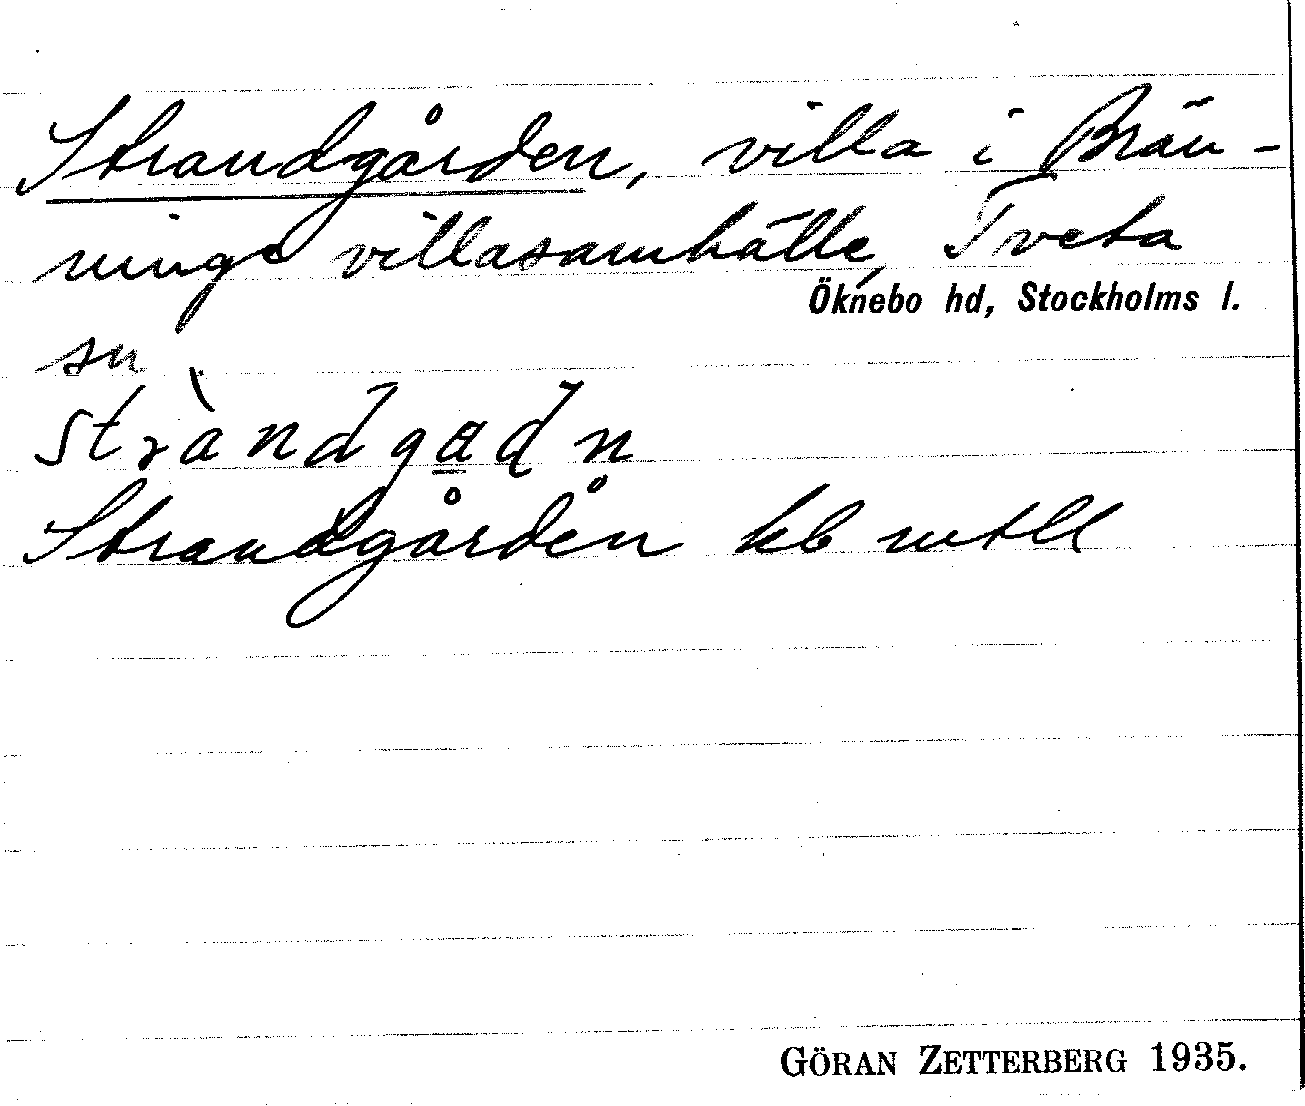 Strandgården, villa i Brän-
ninge villasamhälle, Tveta
Öknebo hd, Stockholms l.
sn
stràndgadn
Strandgården kb mtll
GÖRAN ZETTERBERG 1935.